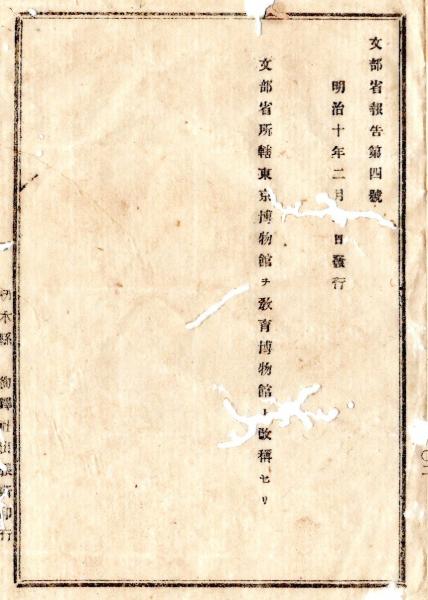 文部省報告第四號
明治十年二月 日發行
文部省所轄東京博物館ヲ敎育博物館ト改稱セリ
〇二
木縣